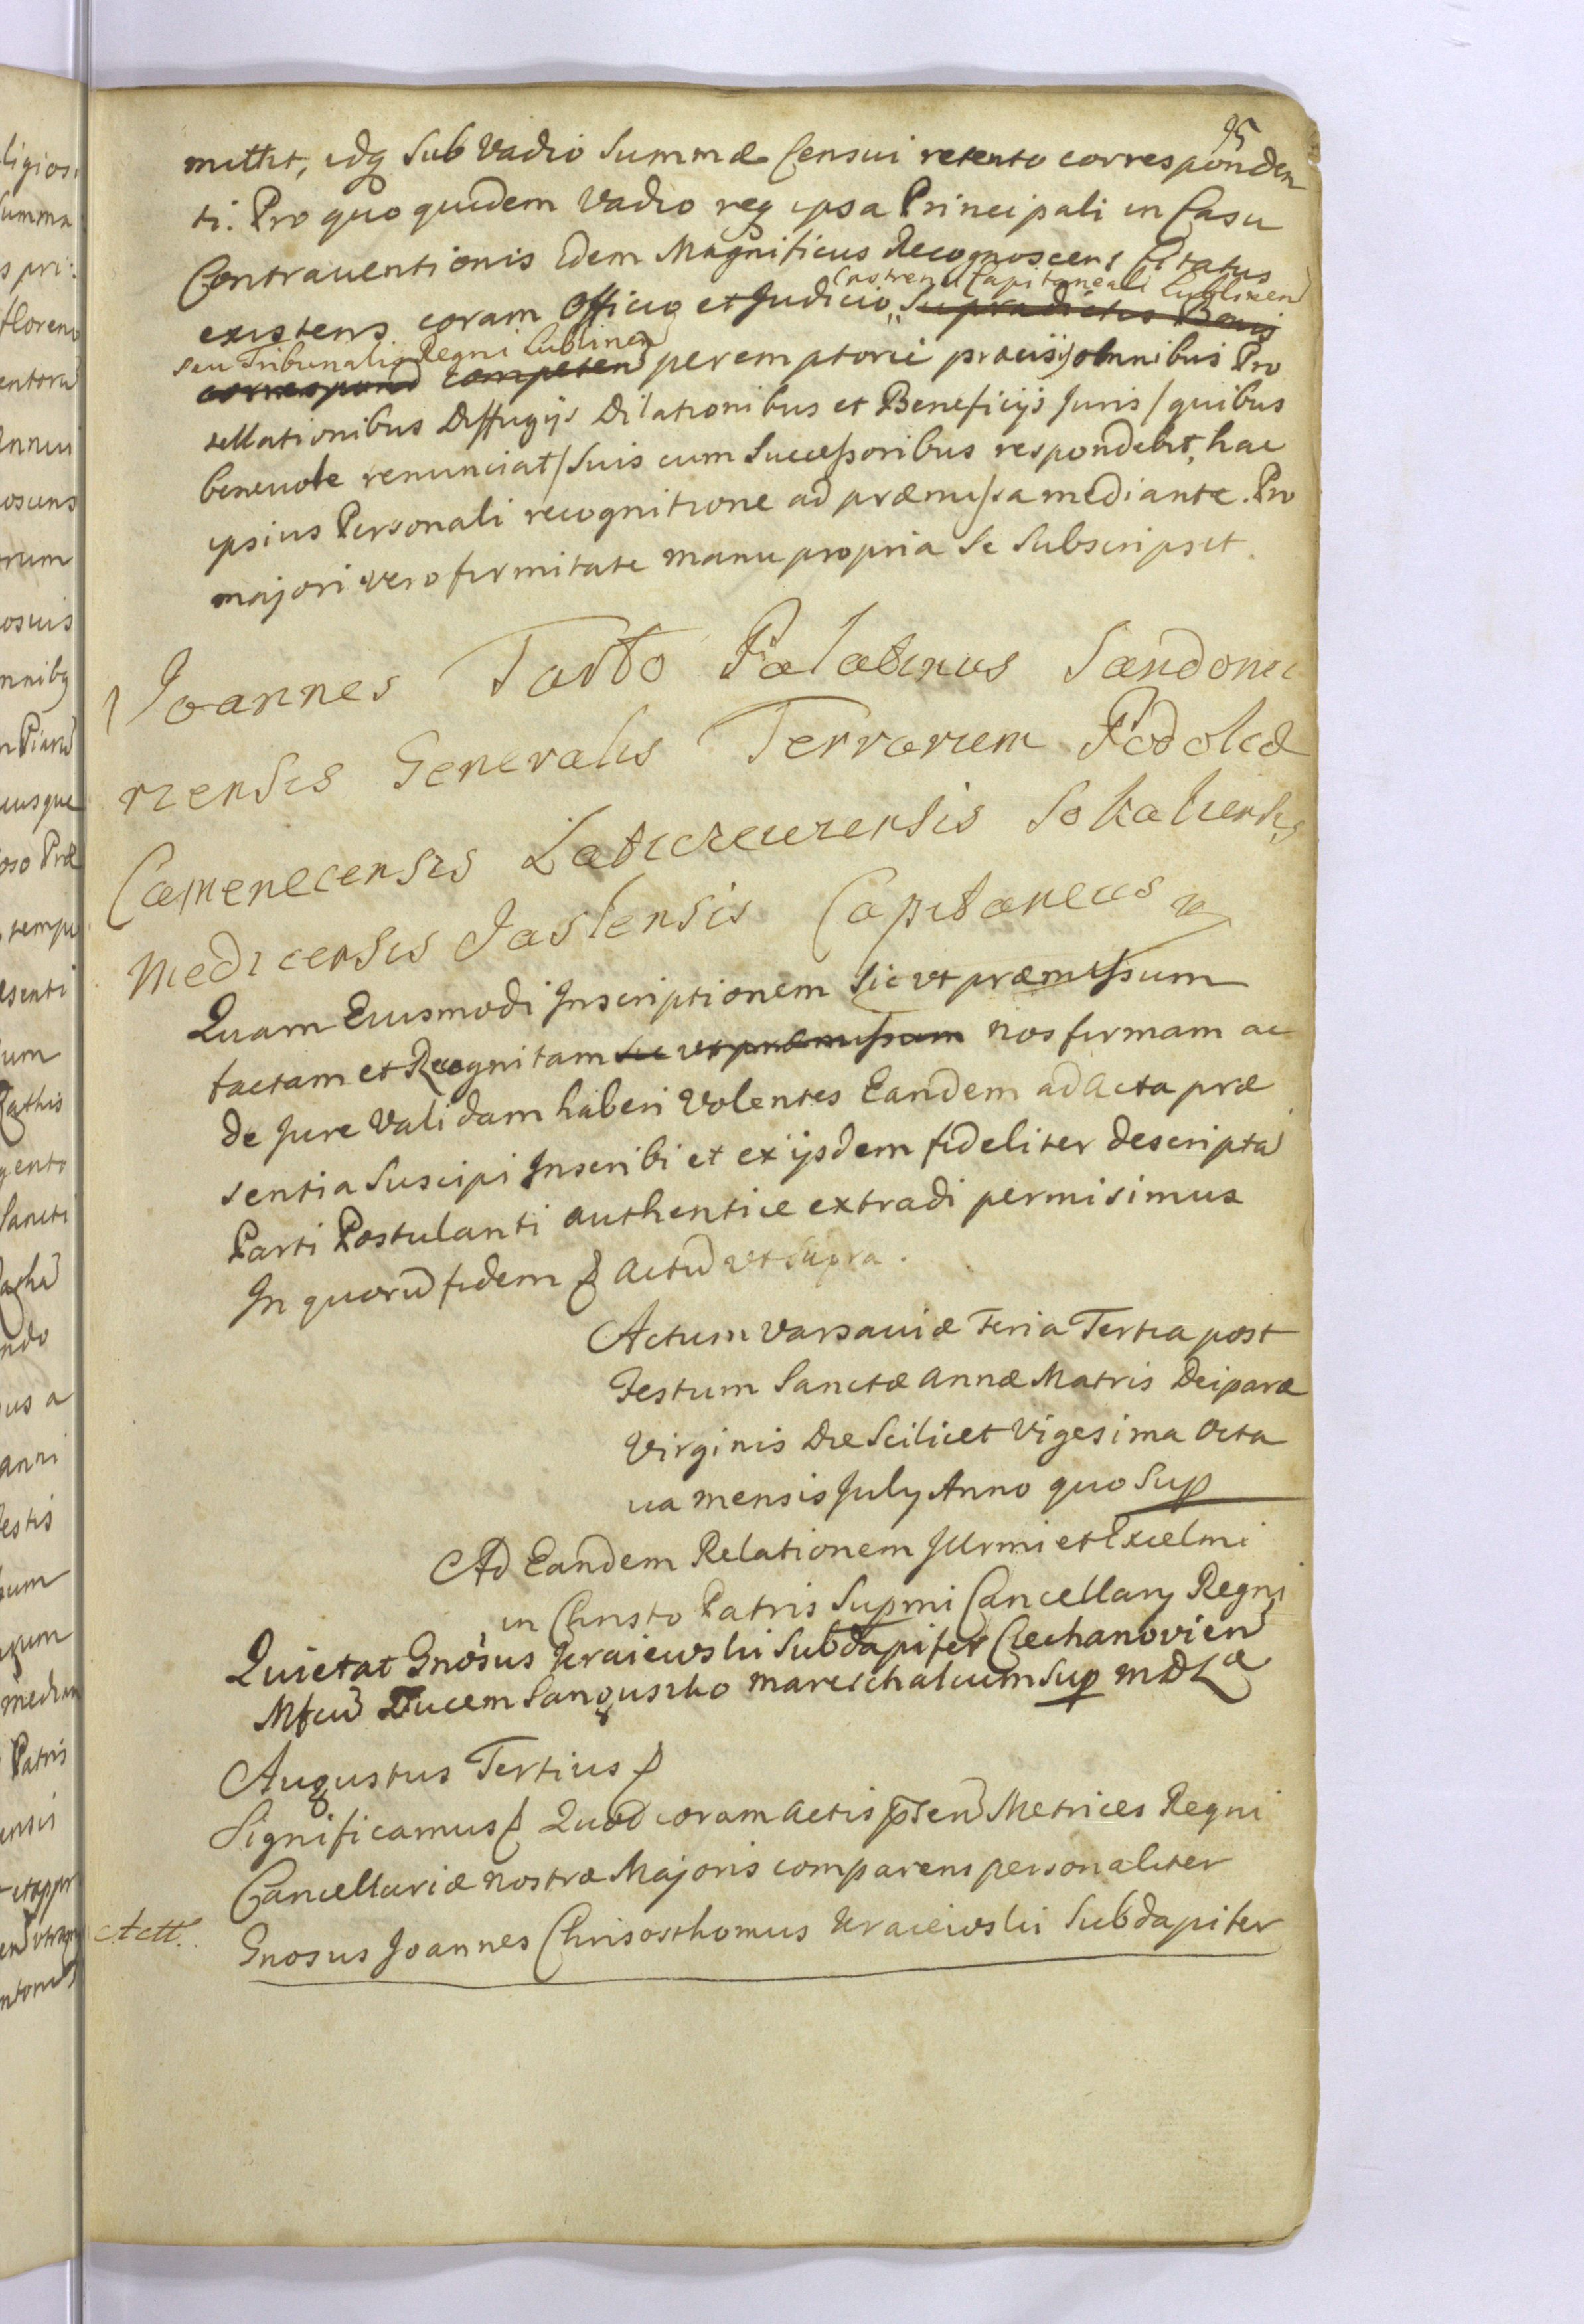 95
mittit, idq Sub Vadio Summæ Censui retento corresponden
ti. Pro quo quidem Vadio req ipsa Principali in Casu
Contrauentionis Idem Magnificus Recognoscens Citatus
Castren Capitaneali Lublinen
existens coram Officio et Judicio Supradictis Bonis
seu Tribunali Regni Lublinen
correspond competen peremptorie præcisis omnibus Pro
tellationibus Diffugijs Dilationibus et Beneficijs Juris / quibus
beneuole renunciat / Suis cum Successoribus respondebit, hac
ipsius Personali recognitione ad præmissa mediante. Pro
majori vero firmitate manu propria Se Subscripsit.
Joannes Tarło Palatinus Sandomi
riensis Generalis Terrarum Podoliæ
Camenecensis Latyczeuiensis Sokaliensis
Medicensis Jaslensis Capitaneus
Quam Eiusmodi Inscriptionem Sic vt præmissum
factam et Recognitam sic vt præmissum nos firmam ac
de Jure Validam haberi Volentes Eandem ad Acta præ
sentia Suscipi Inscribi et ex ijsdem fideliter descripta
Parti Postulanti authentice extradi permisimus
In quorū fidem Actū vt Supra.
Actum Varsauiæ Feria Tertia post
Festum Sanctæ Annæ Matris Deiparæ
Virginis Die Scilicet Vigesima Octa
ua mensis July Anno quo Sup
Ad Eandem Relationem Illrmi et Excelmi
in Christo Patris Supmi Cancellary Regni
Quietat Gnosus Kraiewski Subdapifer Ciechanovien
Mfcū Ducem Sanguszko Mareschalcum Sup M D L æ
Augustus Tertius
Significamus Quod coram Actis pñsen Metrices Regni
Cancellariæ nostræ Majoris comparens personaliter
Actt. Gnosus Joannes Chrisosthomus Kraiewski Subdapifer